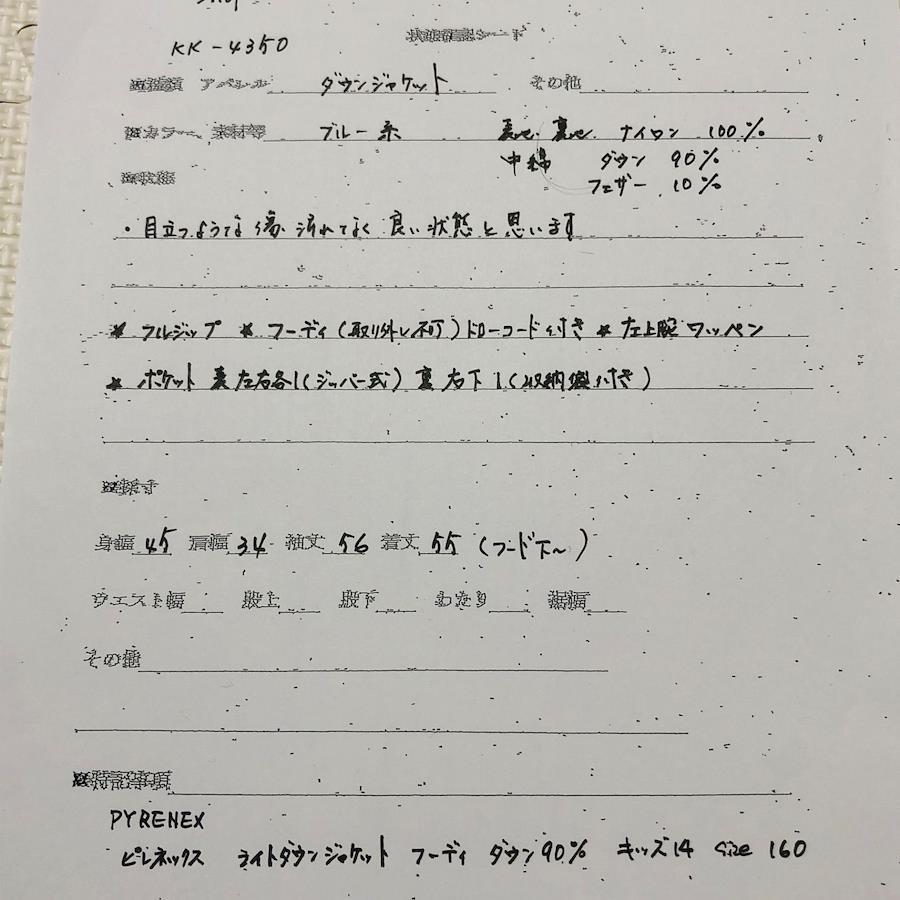 KK-4350
状態確認シート
※種類 アパレル ダウンジャケット その他
※カラー、素材等 ブルー系 表地、裏地、ナイロン 100%
中綿 ダウン 90%
フェザー 10%
※状態
・目立つような傷、汚れてなく 良い状態と思います
★ フルジップ ★ フーディ(取り外し不可)ドローコード付き ★ 左上腕 ワッペン
★ ポケット 表 左右各1(ジッパー式) 裏 右下1(収納袋付き)
※採寸
身幅 45 肩幅 34 袖丈 56 着丈 55 (フード下~)
ウエスト幅 股上 股下 わたり 裾幅
その他
※特記事項
PYRENEX
ピレネックス ライトダウンジャケット フーディ ダウン90% キッズ14 size 160